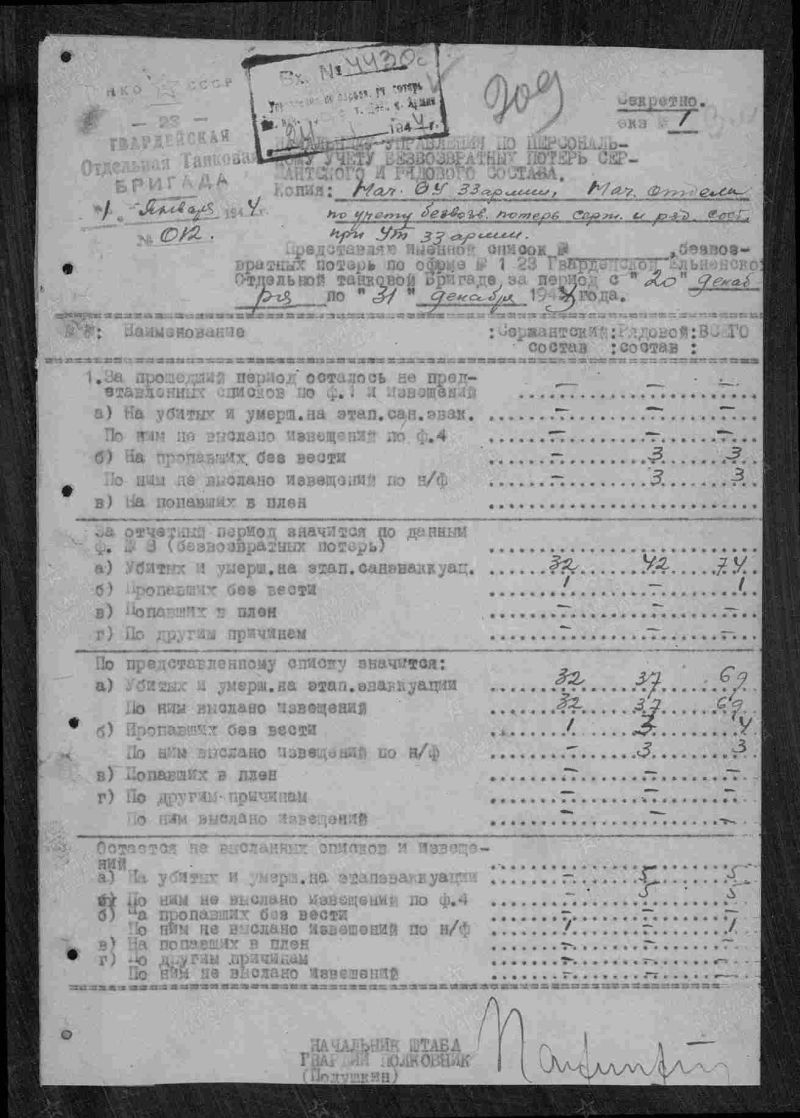 НКО СССР
— 23 —
ГВАРДЕЙСКАЯ
Отдельная Танковая
БРИГАДА
"1" Января 1944 г.
№ 012.
Вх. № 4430с
1944 г.
309
Секретно.
экз № 1
НАЧАЛЬНИКУ УПРАВЛЕНИЯ ПО ПЕРСОНАЛЬ-
НОМУ УЧЕТУ БЕЗВОЗВРАТНЫХ ПОТЕРЬ СЕР-
ЖАНТСКОГО И РЯДОВОГО СОСТАВА.
Копия: Нач. ОУ 33 армии, Нач. отдела
по учету безвозв. потерь серж. и ряд. сост.
при УТ 33 армии.
Представляю именной список № ,безвоз-
вратных потерь по форме № 1 23 Гвардейской Ельненской
Отдельной танковой Бригаде, за период с "20" декаб
ря по "31" декабря 1943 года.
№№: Наименование :Сержантский:Рядовой:ВСЕГО
состав :состав :
1.За прошедший период осталось не пред-
ставленных списков по ф.1 и извещений — — —
а) На убитых и умерш.на этап.сан.эвак. — — —
По ним не выслано извещений по ф.4 — — —
б) На пропавших без вести — 3 3
По ним не выслано извещений по н/ф — 3 3
в) На попавших в плен
За отчетный период значится по данным
ф. № 8 (безвозвратных потерь)
а) Убитых и умерш.на этап.санэваккуац. 32 42 74
б) Пропавших без вести 1 — 1
в) Попавших в плен — — —
г) По другим причинем — — —
По представленному списку значится:
а) Убитых и умерш.на этап.эваккуации 32 37 69
По ним выслано извещений 32 37 69
б) Пропавших без вести 1 3 4
По ним выслано извещений по н/ф — 3 3
в) Попавших в плен — — —
г) По другим причинам — — —
По ним выслано извещений — — —
Остается не высланных списков и извеще-
ний
а) На убитых и умерш.на этапэваккуации — 5 5
По ним не выслано извещений по ф.4 — 5 5
б) На пропавших без вести — — —
По ним не выслано извещений по н/ф 1 — 1
в) На попавших в плен — — —
г) По другим причинам — — —
По ним не выслано извещений — — —
НАЧАЛЬНИК ШТАБА
ГВАРДИИ ПОЛКОВНИК
(Полушкин)